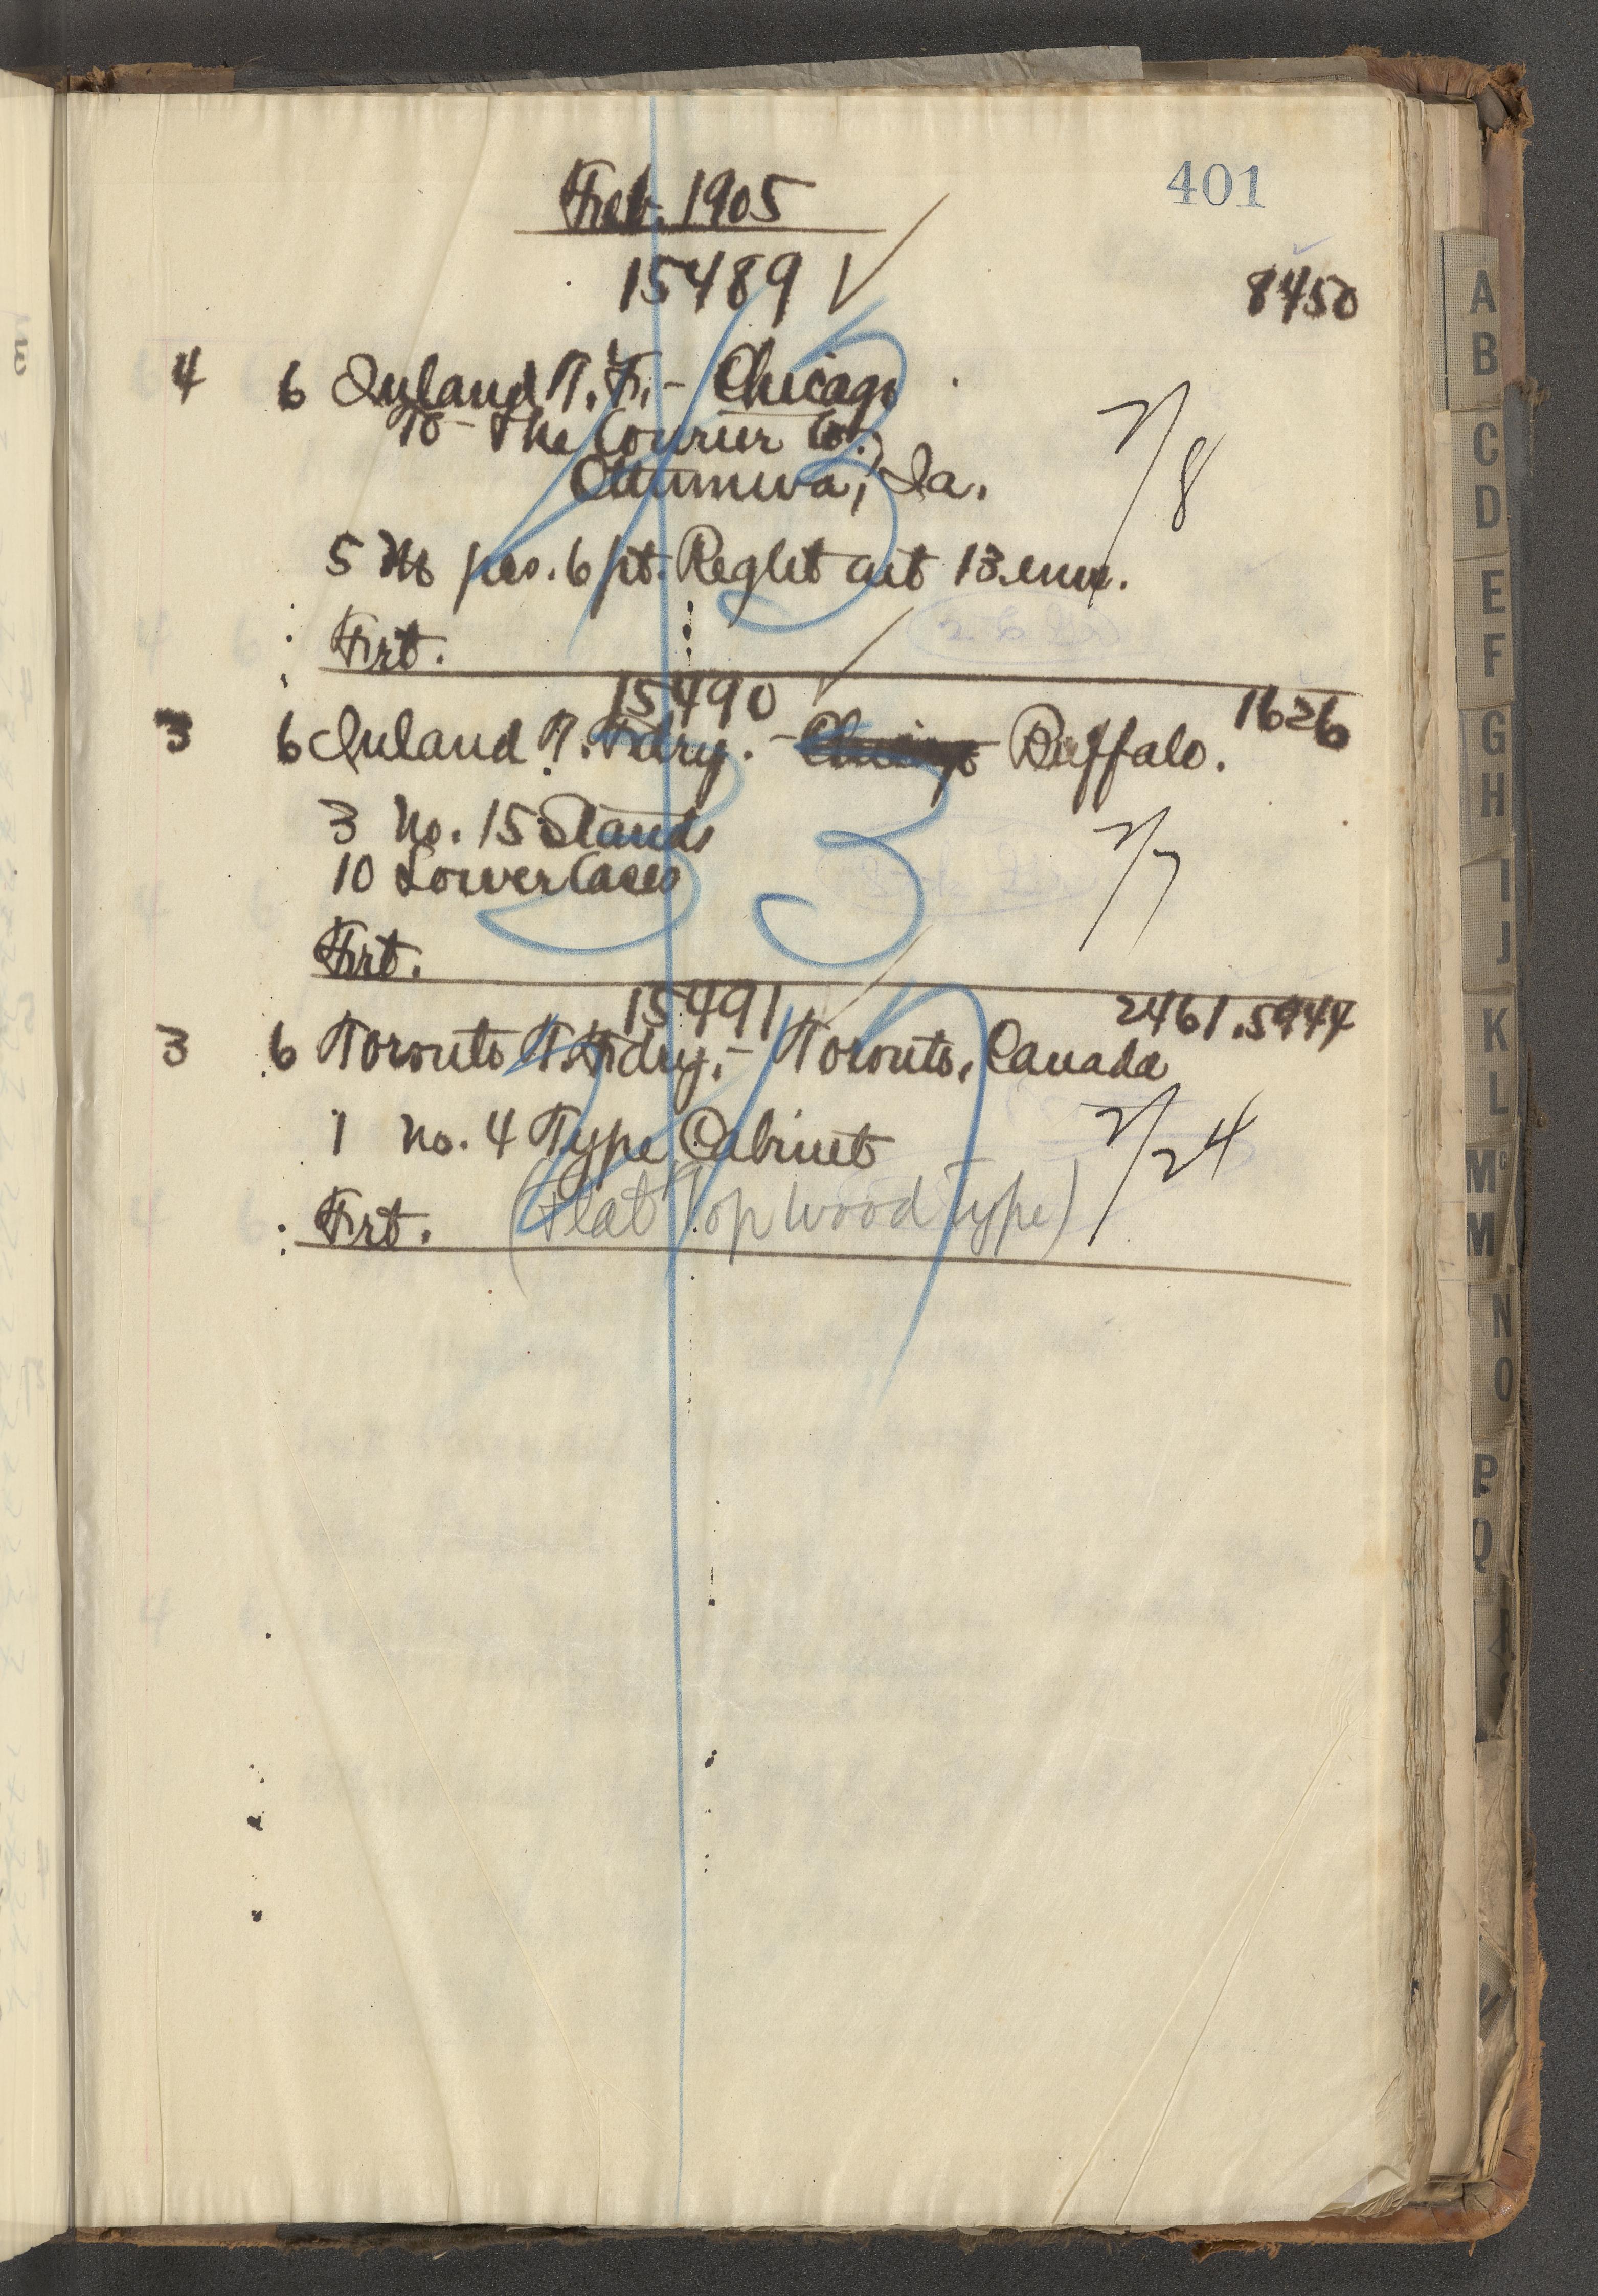 401
Feb. 1905
15489 ✓
8450
4 6 Inland T. F. - Chicago
To - The Courier Co.,
Ottumwa, Ia.
2/8
5 M pcs. 6 pt. Reglet cut 13 ems.
Frt.
15490
1626
3 6 Inland T. Fdry. - Chicago Buffalo.
3 No. 15 Stands
2/7
10 Lower Cases
Frt.
15491
2461.5944
3 6 Toronto T. Fdry. - Toronto, Canada
1 No. 4 Type Cabinet
2/24
Frt. (Flat Top Wood Type)
A
B
C
D
E
F
G
H
I
J
K
L
Mc
M
N
O
P
Q